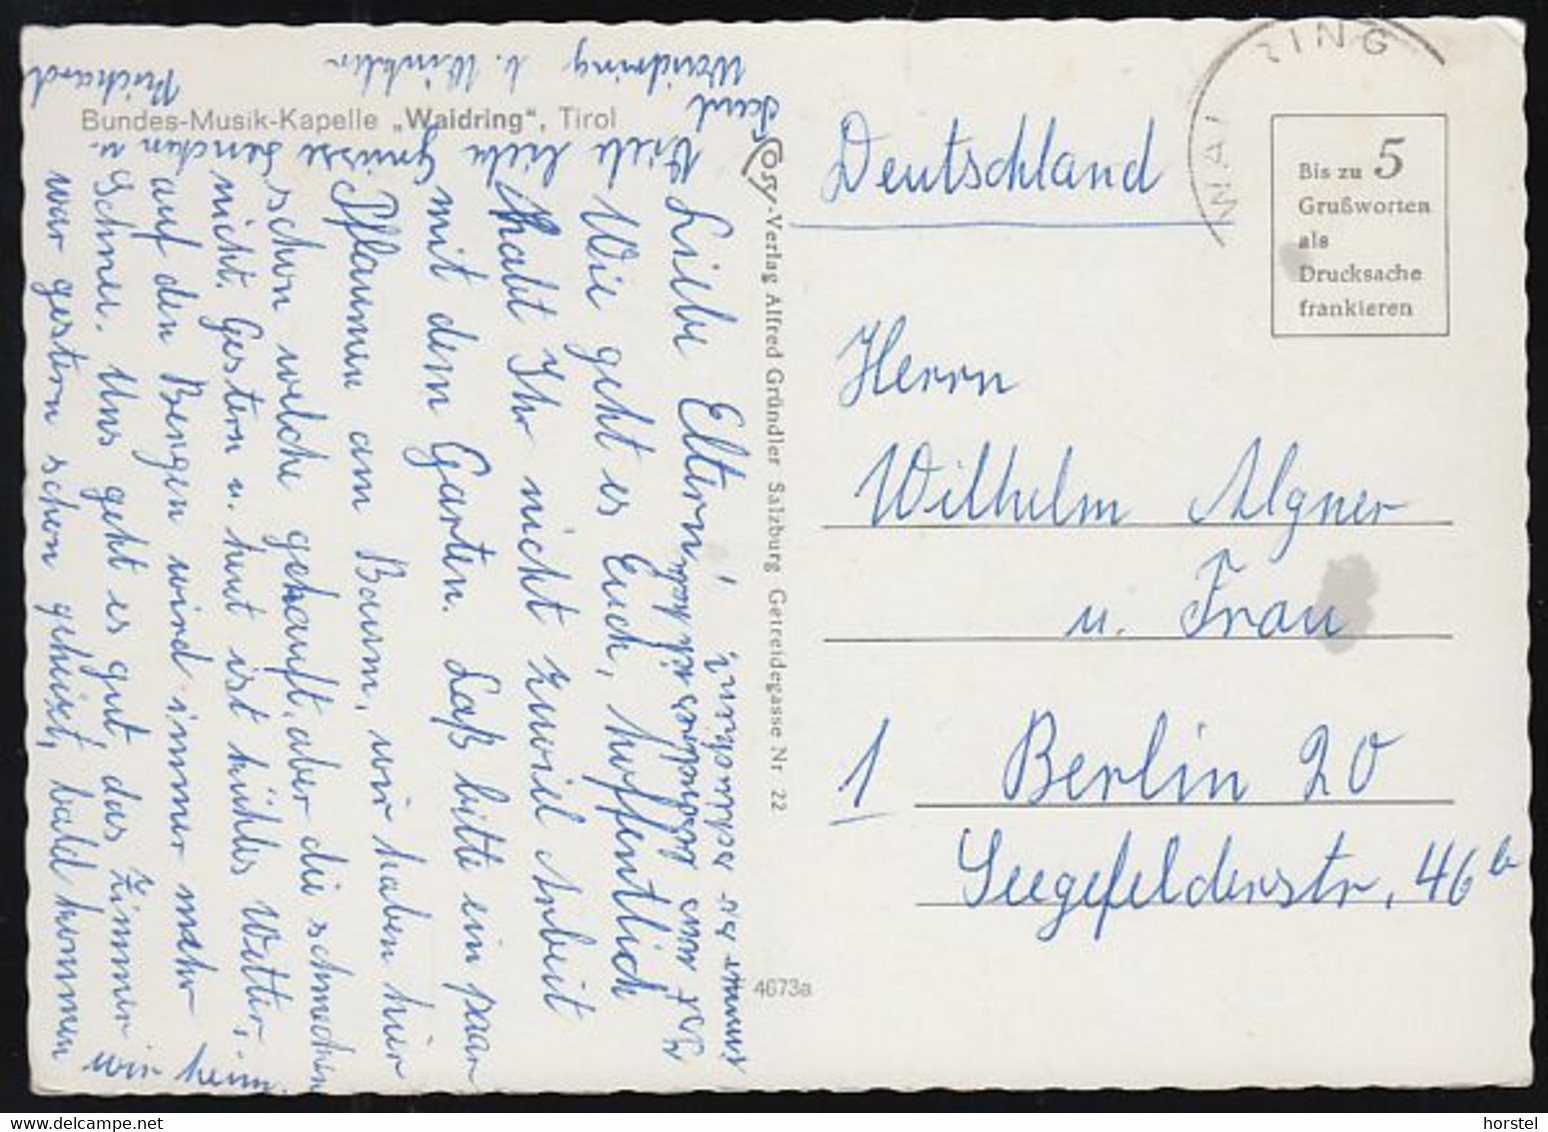 Bundes-Musik-Kapelle „Waidring“, Tirol
Waidring b. Winkler
Liebe Eltern!
Wie geht es Euch, hoffentlich
Habt Ihr nicht zuviel Arbeit
mit dem Garten. Laß bitte ein paar
Pflaumen am Baum, wir haben hier
schon welche gekauft, aber die schmecken
nicht. Gestern u. heut ist kühles Wetter,
auf den Bergen wird immer mehr
Schnee. Uns geht es gut, das Zimmer
war gestern schon geheizt, bald kommen
wir heim.
Viele liebe Grüsse senden u.
Richard
Cosy-Verlag Alfred Gründler Salzburg Getreidegasse Nr. 22
4673a
WAI RING
Bis zu 5
Grußworten
als
Drucksache
frankieren
Deutschland
Herrn
Wilhelm Algner
u. Frau
1 Berlin 20
Seegefelderstr. 46b
horstel